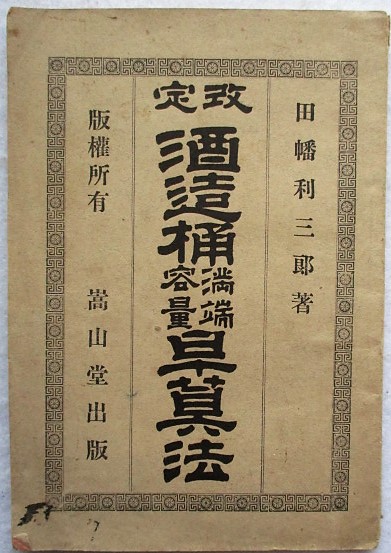 田幡利三郎著
改定
酒造桶
滿端
容量
早算法
版權所有　嵩山堂出版